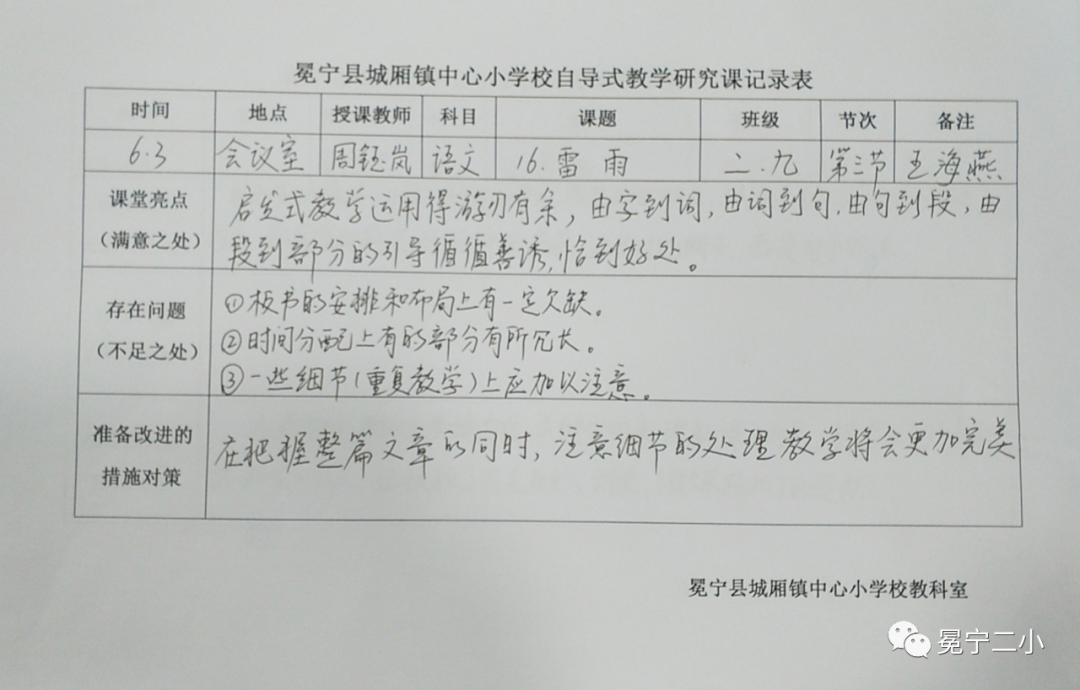 冕宁县城厢镇中心小学校自导式教学研究课记录表
时间 地点 授课教师 科目 课题 班级 节次 备注
6.3 会议室 周钰岚 语文 16.雷雨 二.九 第三节 王海燕
课堂亮点
(满意之处)
启发式教学运用得游刃有余，由字到词，由词到句，由句到段，由
段到部分的引导循循善诱，恰到好处。
存在问题
(不足之处)
①板书的安排和布局上有一定欠缺。
②时间分配上有的部分有所冗长。
③一些细节(重复教学)上应加以注意。
准备改进的
措施对策
在把握整篇文章的同时，注意细节的处理教学将会更加完美
冕宁县城厢镇中心小学校教科室
冕宁二小